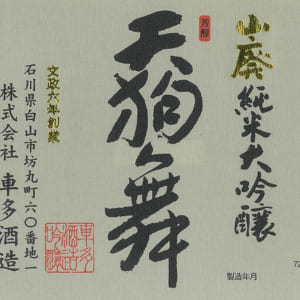 山廃純米大吟醸
芳醇
天狗舞
文政六年創業
石川県白山市坊丸町六〇番地一
株式会社 車多酒造
車多
酒造
吟醸
製造年月
72